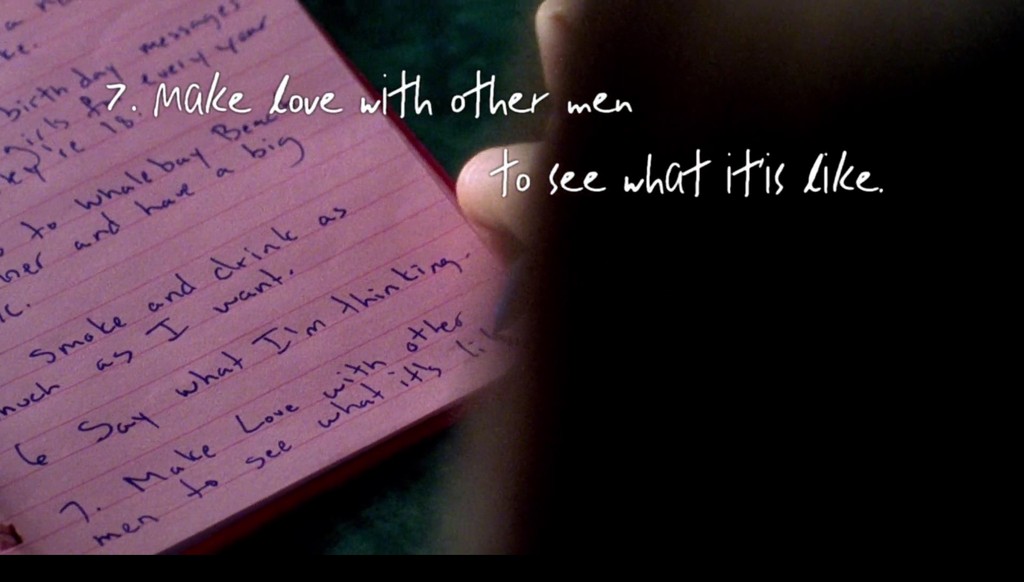 7. Make love with other men
to see what it'is like.
a
ke.
birthday messages
girls every
18.
to whalebay Beac
ner and have a big
ic.
smoke and drink as
much as I want.
6 Say what I'm thinking.
7. Make Love with other
men to see what it's li